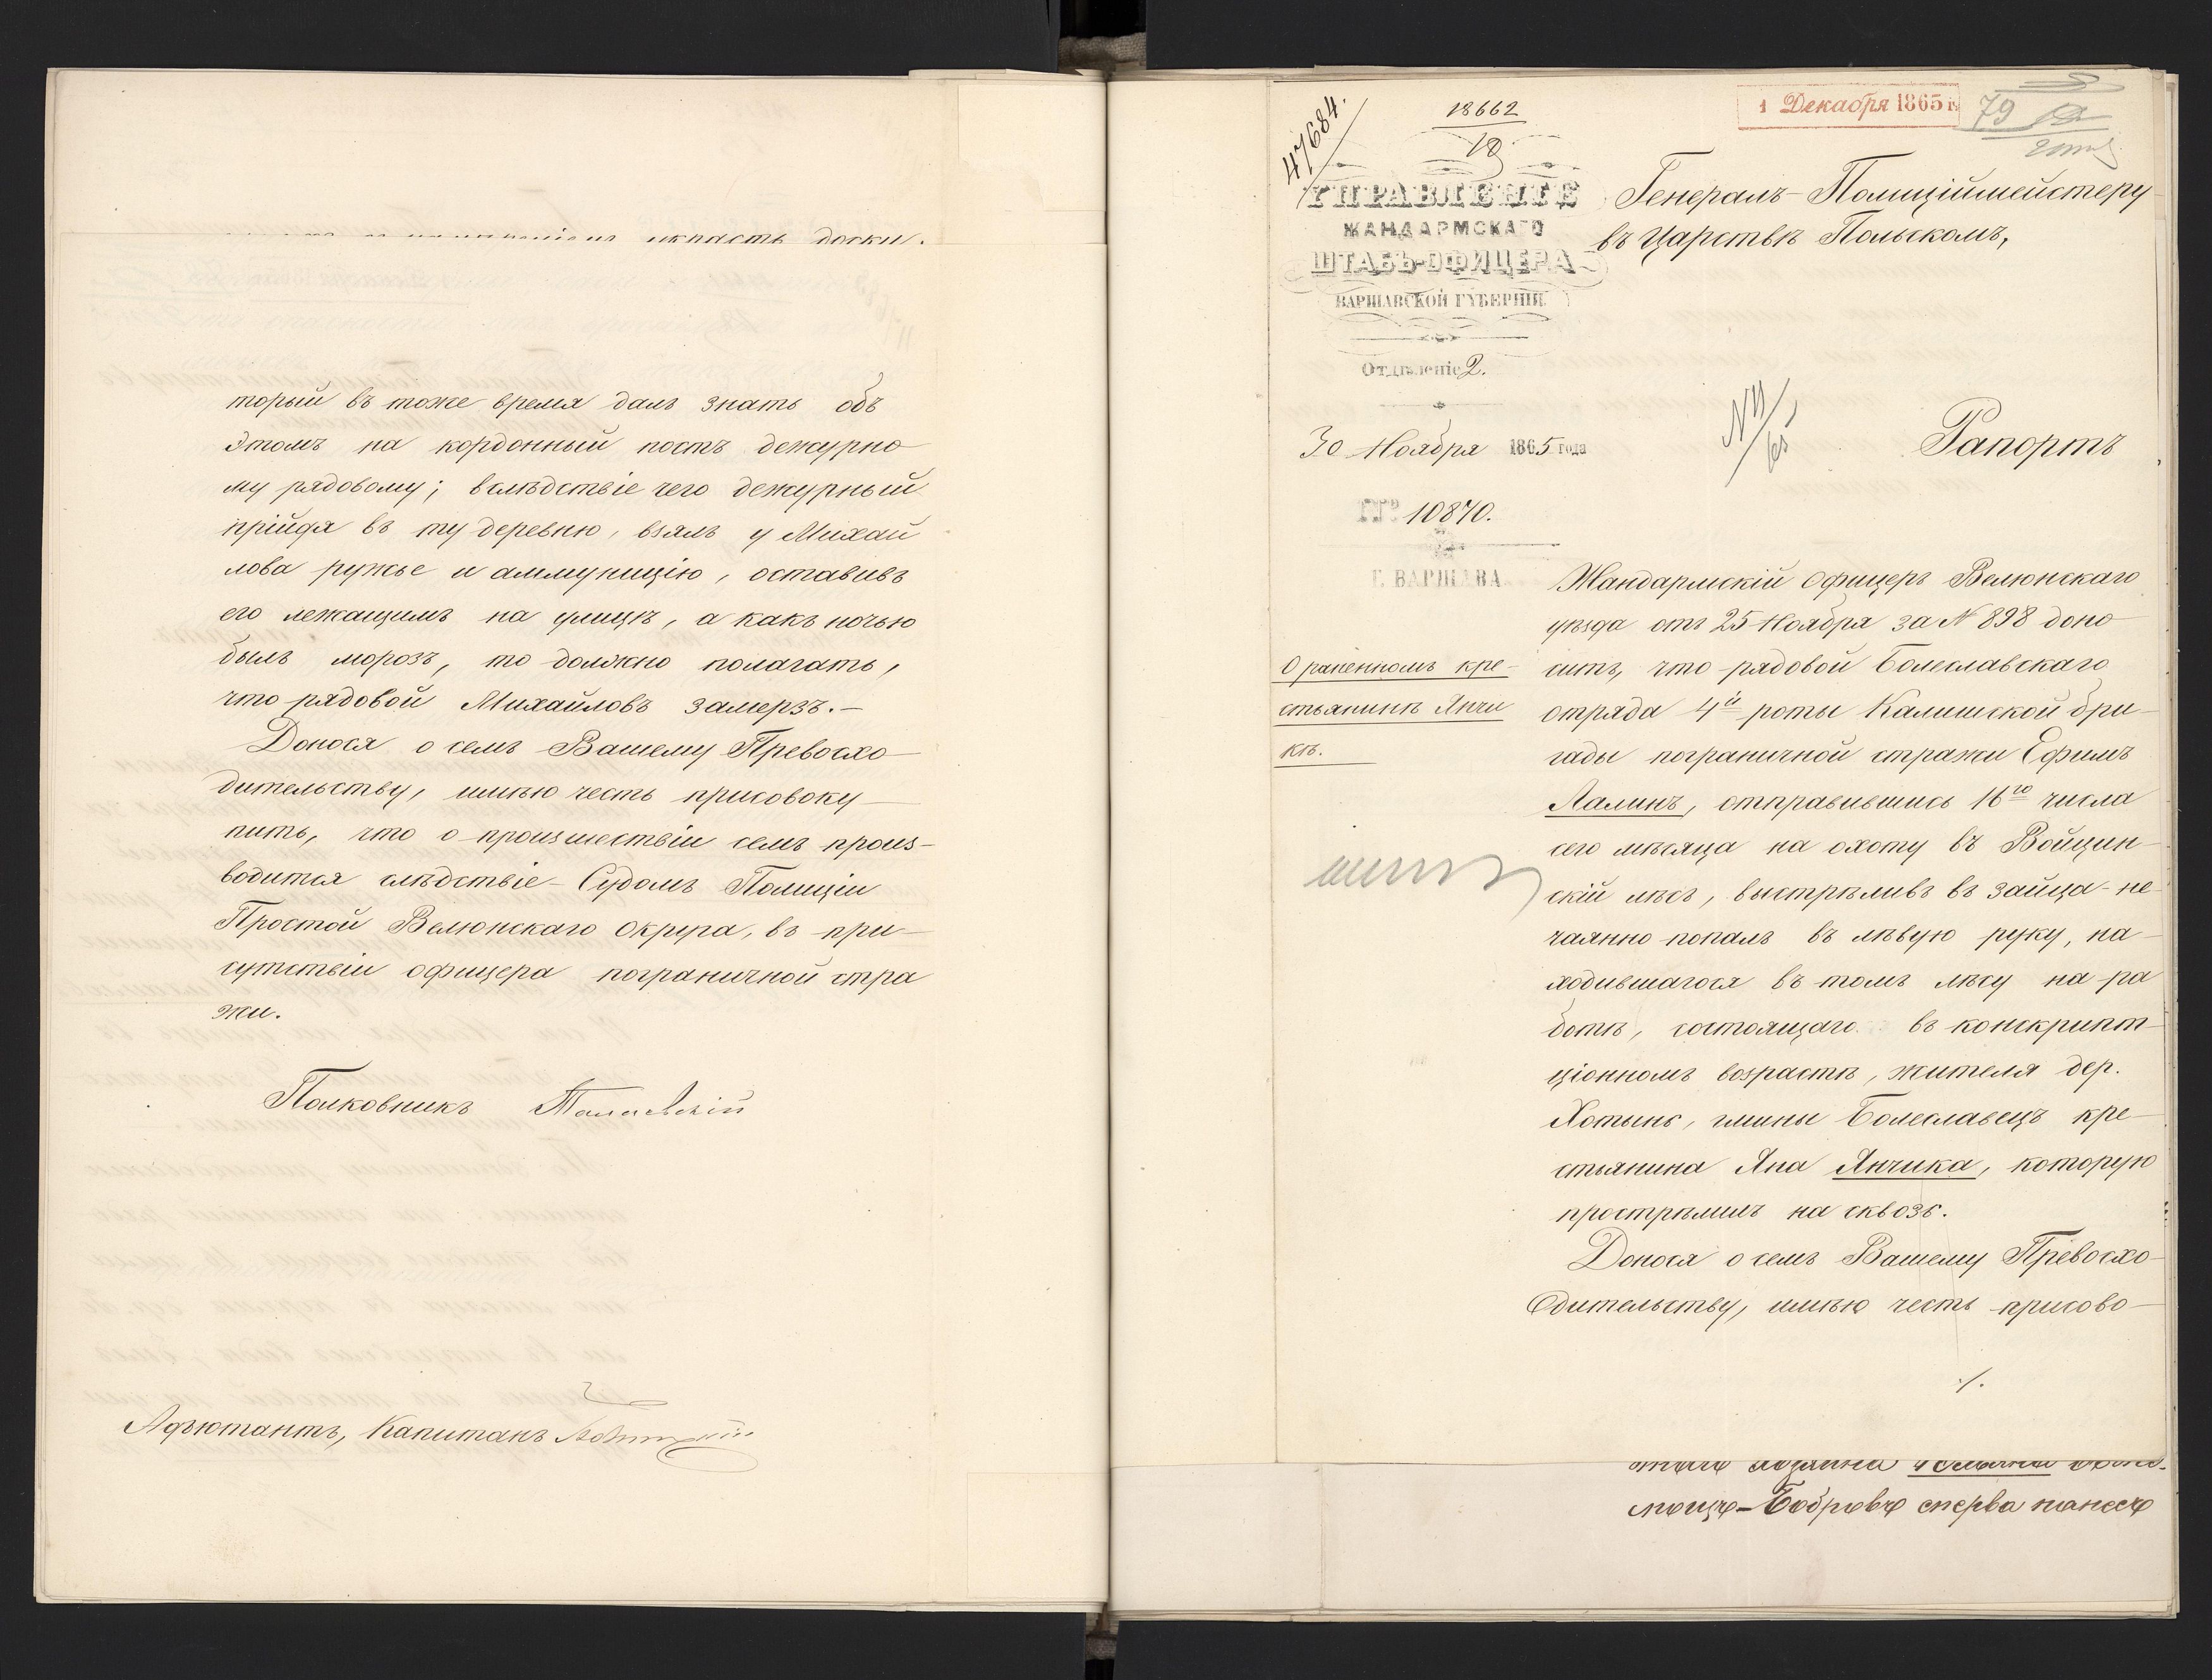 укпасть доски.
торый въ тоже время далъ знать объ
этомъ на кордонный постъ дежурно
му рядовому; вслѣдствіе чего дежурный
прійдя въ ту деревню, взялъ у Михай
лова ружье и аммуницію, оставивъ
его лежащимъ на улицѣ, а какъ ночью
былъ морозъ, то должно полагать,
что рядовой Михайловъ замерзъ.—
Донося о семъ Вашему Превосхо
дительству, имѣю честь присовоку
пить, что о произшествіи семъ произ-
водится слѣдствіе Судомъ Полиціи
Простой Велюнскаго Округа, въ при
сутствіи офицера пограничной стра
жи.
Полковникъ
Адъютантъ, Капитанъ
47684.
18662
18
1 Декабря 1865 г.
79
УПРАВЛЕНІЕ
ЖАНДАРМСКАГО
ШТАБЪ-ОФИЦЕРА
ВАРШАВСКОЙ ГУБЕРНІИ.
Отдѣленіе 2.
30 Ноября 1865 года
№ 10870.
Г. ВАРШАВА.
Генералъ-Полиціймейстеру
въ Царствѣ Польскомъ,
Рапортъ
О раненномъ кре-
стьянинѣ Янчи
кѣ.
Жандармскій Офицеръ Велюнскаго
уѣзда отъ 25 Ноября за № 898 доно
ситъ, что рядовой Болеславскаго
отряда 4й роты Калишской бри
гады пограничной стражи Ефимъ
Лалинъ, отправившись 16го числа
сего мѣсяца на охоту въ Войцин
скій лѣсъ, выстрѣливъ въ зайца не
чаянно попалъ въ лѣвую руку, на
ходившагося въ томъ лѣсу на ра
ботѣ, состоящаго въ конскрипт
ціонномъ возрастѣ, жителя дер.
Хотынь, гмины Болеславецъ кре
стьянина Яна Янчика, которую
прострѣлилъ на сквозь.
Донося о семъ Вашему Превосхо
дительству, имѣю честь присово
./.
мецъ-Бобровъ сперва нанесъ